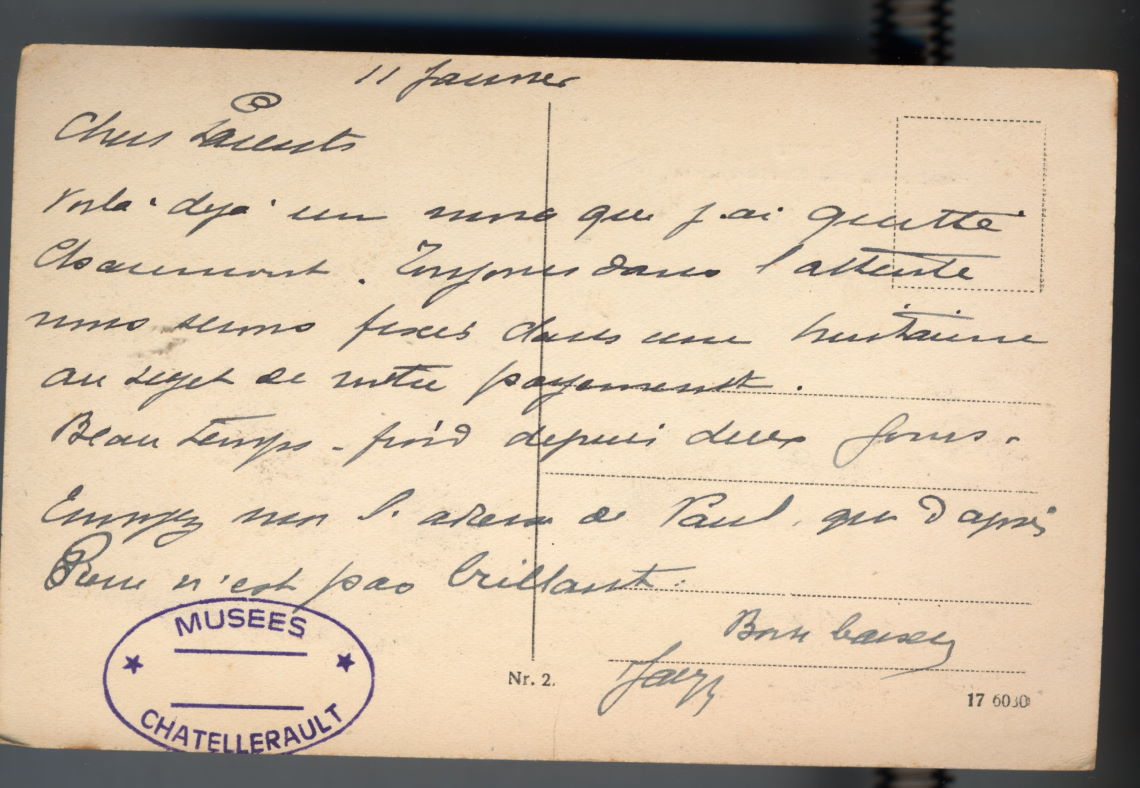 11 Janvier
Chers Parents
Voilà déjà un mois que j'ai quitté
Chaumont. Toujours dans l'attente
nous serons fixés dans une huitaine
au sujet de notre payement.
Beau temps - froid depuis deux jours.
Envoyez moi l'adresse de Paul, qui d'après
Pierre n'est pas brillant.
Bons baisers
MUSEES
CHATELLERAULT
Nr. 2.
17 6030